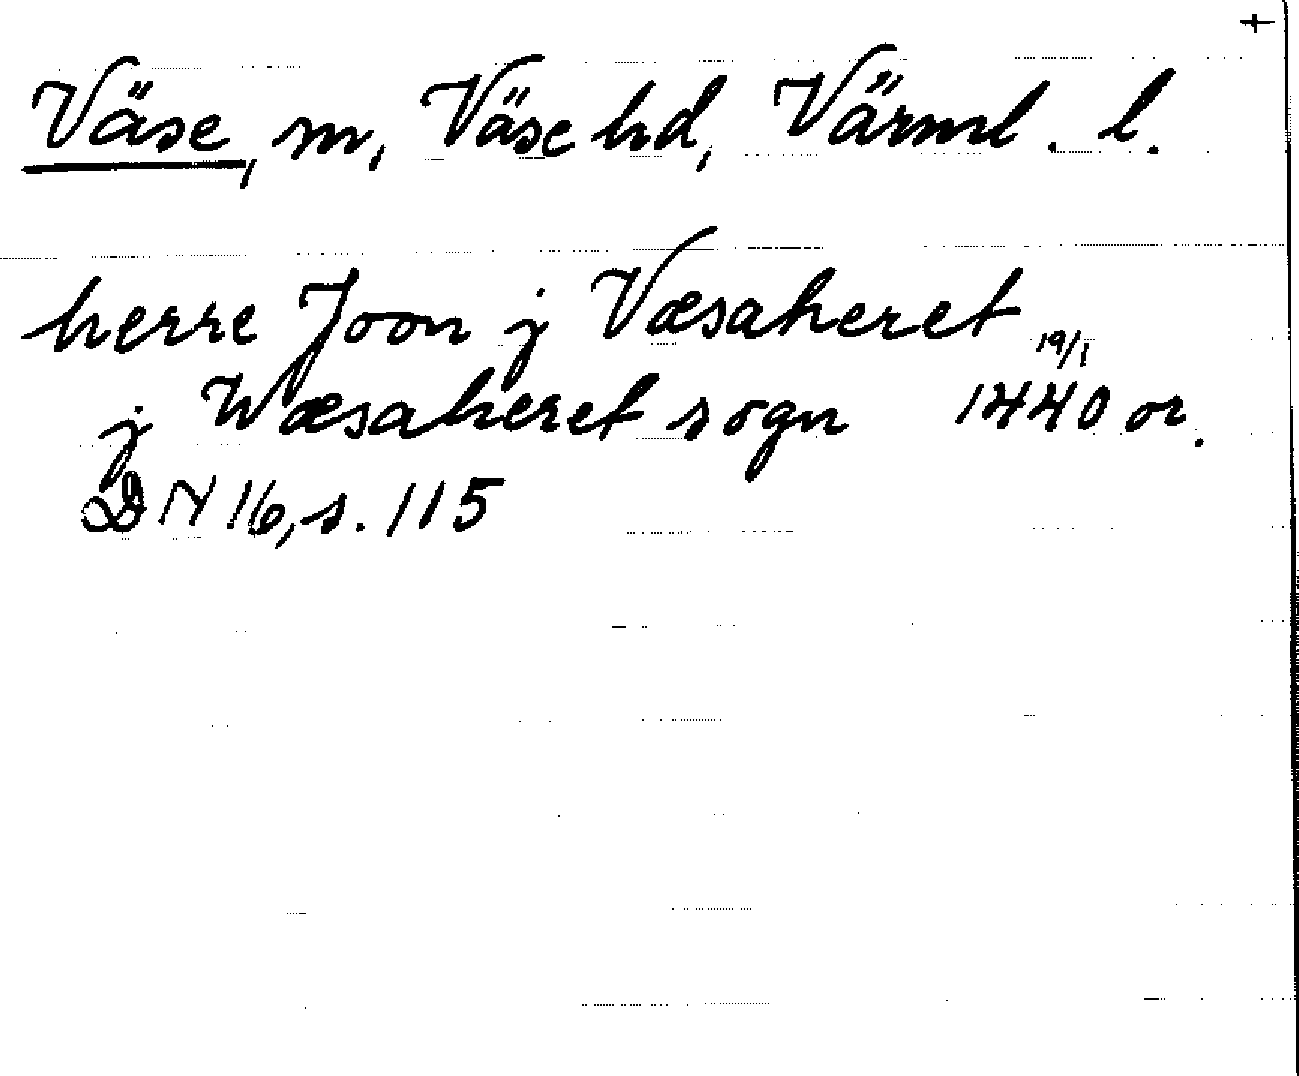 +
Väse, sn, Väse hd, Värml. l.
herre Joon j Væsaheret
19/1
j Wæsaheret sogn 1440 or.
DN 16, s. 115